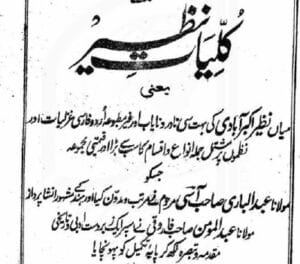 کلیاتِ نظیر
یعنی
میاں نظیر اکبر آبادی کی بہت سی نادر و نایاب اور غیر مطبوعہ اُردو فارسی غزلیات اور
نظموں پر مشتمل جملہ انواع و اقسام کا سب سے بڑا اور قیمتی مجموعہ
جسکو
مولانا عبد الباری صاحب آسی مرحوم نے مرتب و مدوّن کیا اور ہند کے مشہور انشا پرداز
مولانا عبد المومن صاحب فاروقی نے
مقدمہ و تبصرہ لکھ کر پایہ تکمیل کو پہونچایا